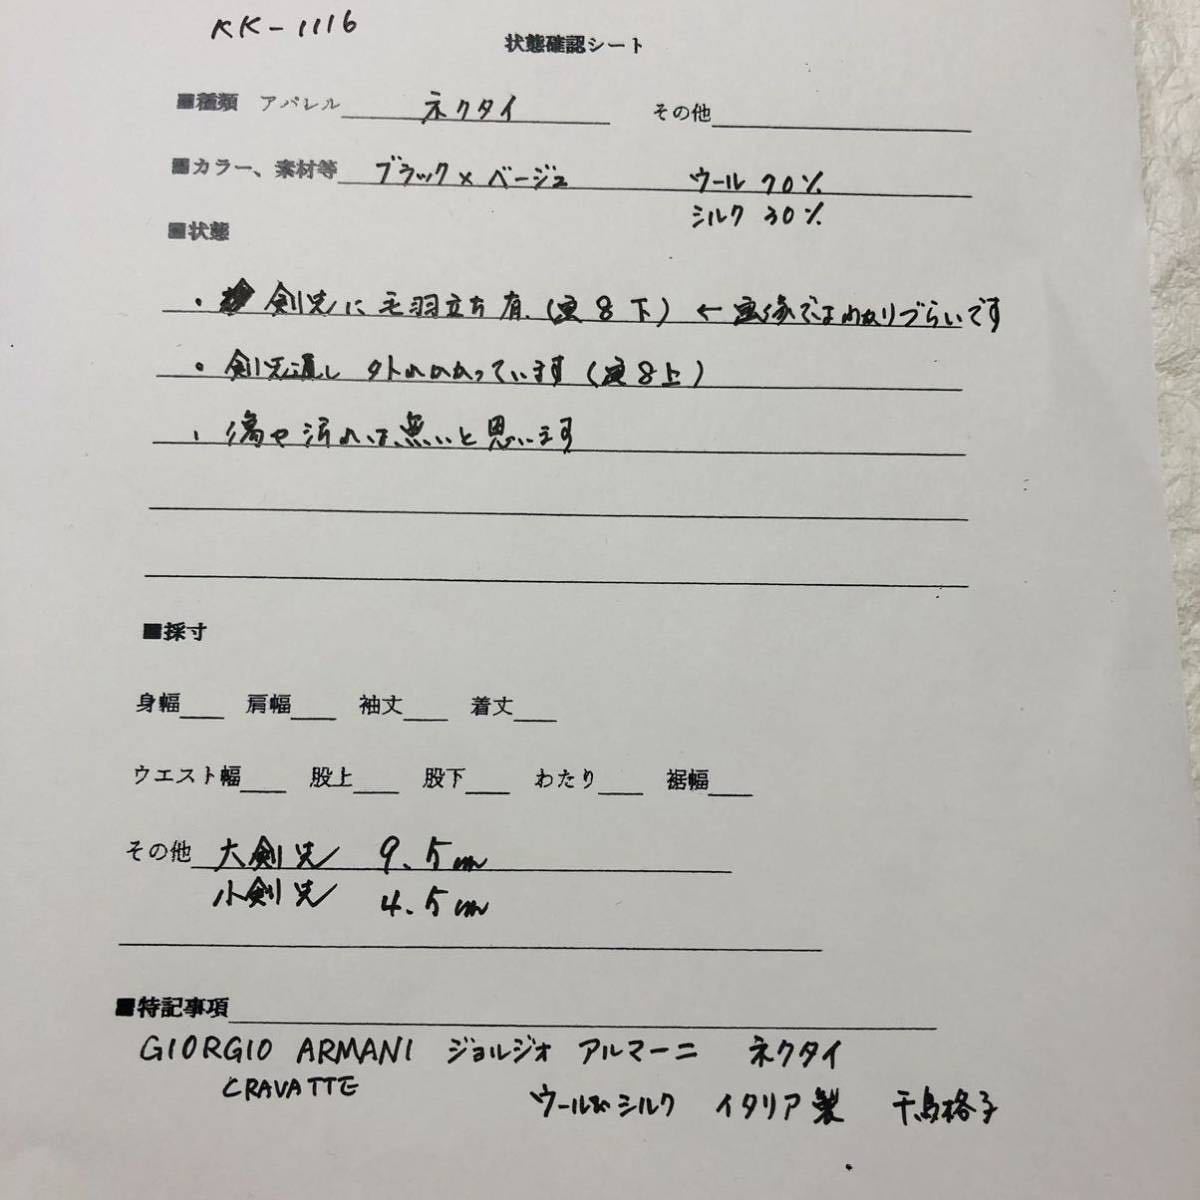 KK-1116
状態確認シート
■種類 アパレル ネクタイ その他
■カラー、素材等 ブラック×ベージュ ウール 70%
シルク 30%
■状態
・剣先に毛羽立ち有(裏8下) ← 画像ではわかりづらいです
・剣先通し 外れかかっています(裏8上)
・傷や汚れは無いと思います
■採寸
身幅 肩幅 袖丈 着丈
ウエスト幅 股上 股下 わたり 裾幅
その他 大剣先 9.5cm
小剣先 4.5cm
■特記事項
GIORGIO ARMANI ジョルジオ アルマーニ ネクタイ
CRAVATTE
ウール シルク イタリア製 千鳥格子